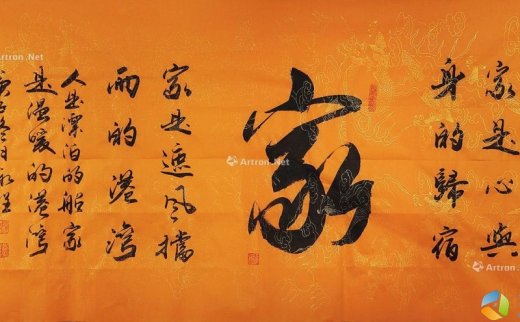 家是心與
身的歸宿
家
家是遮風擋
雨的港灣
人是漂泊的船家
是温暖的港灣
Artron.Net
Artron.Net
Artron.Net